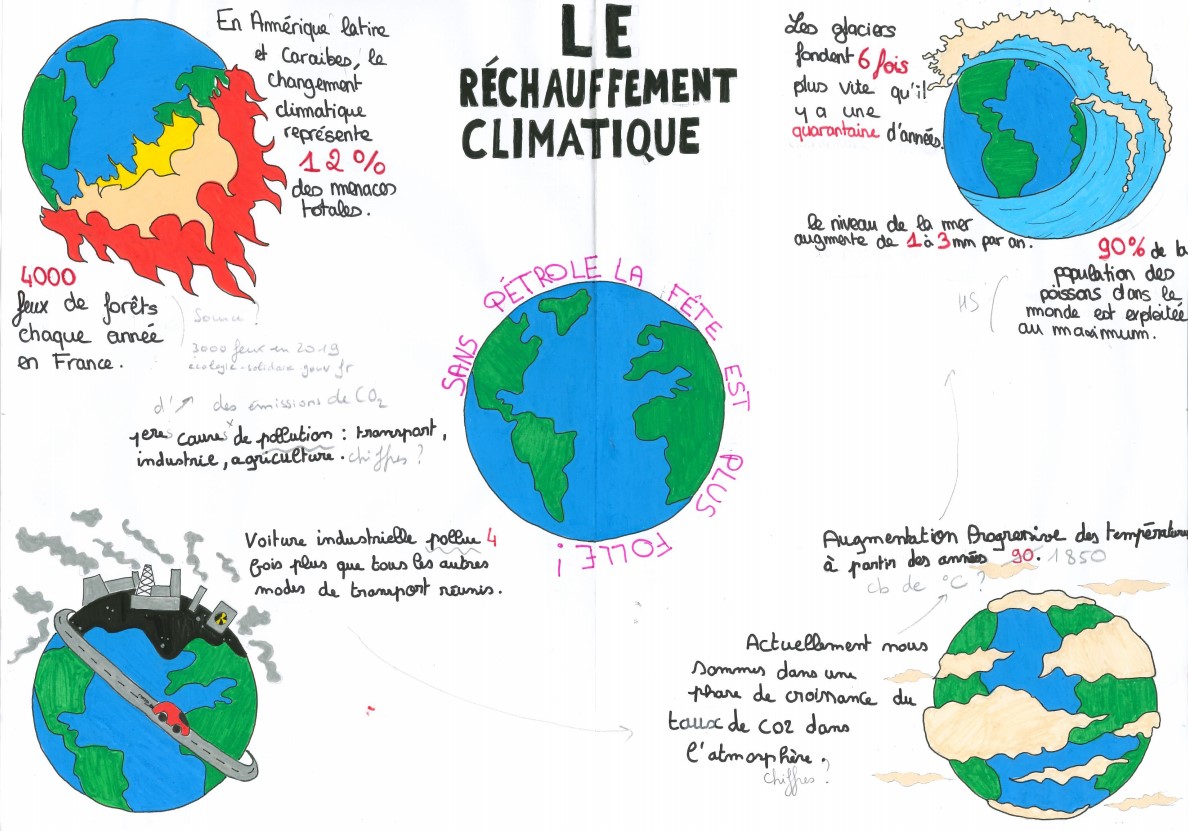 LE
RÉCHAUFFEMENT
CLIMATIQUE
En Amérique latine
et Caraibes, le
changement
climatique
représente
12%
des menaces
totales.
4000
feux de forêts
chaque année
en France.
Source ?
3000 feux en 2019
ecologie-solidaire.gouv.fr
d'↗ des émissions de CO2
1eres causes de pollution : transport,
industrie, agriculture. chiffres ?
Les glaciers
fondent 6 fois
plus vite qu'il
y a une
quarantaine d'années.
le niveau de la mer
augmente de 1 à 3 mm par an.
90% de la
population des
poissons dans le
monde est exploitée
au maximum.
HS
SANS PÉTROLE LA FÉTE EST PLUS FOLLE !
Voiture industrielle pollue 4
fois plus que tous les autres
modes de transport réunis.
Augmentation Progressive des températures
à partir des années 90. 1850
cb de °C ?
Actuellement nous
sommes dans une
phase de croissance du
taux de CO2 dans
l'atmosphère.
chiffres ?